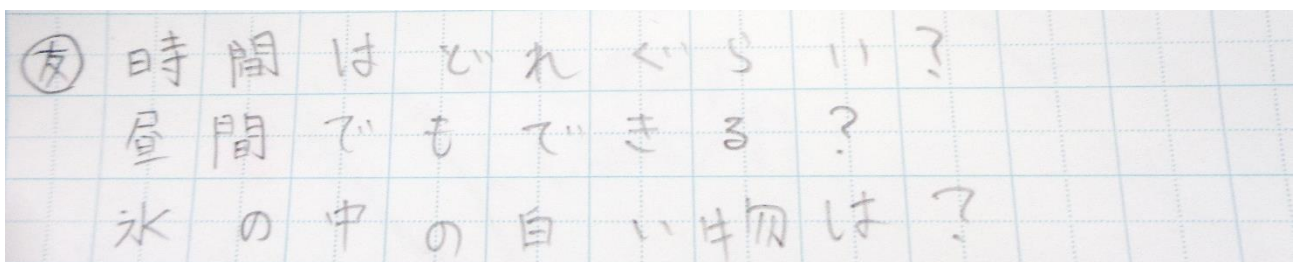 友 時間はどれぐらい?
昼間でもできる?
氷の中の白い物は?